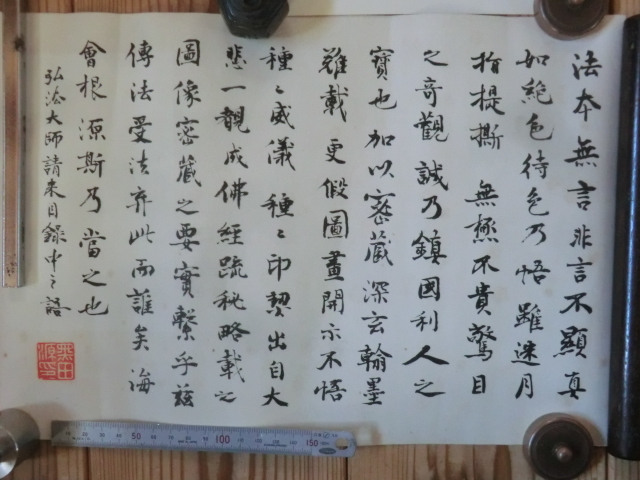 法本無言非言不顯真
如絶色待色乃悟雖迷月
指提撕無極不貴驚目
之奇觀誠乃鎮國利人之
寶也加以密藏深玄翰墨
難載更假圖畫開示不悟
種〻威儀種〻印契出自大
悲一覩成佛經疏秘略載之
圖像密藏之要實繫乎茲
傳法受法弃此而誰矣海
會根源斯乃當之也
弘法大師請来目録中之語
50 100 150